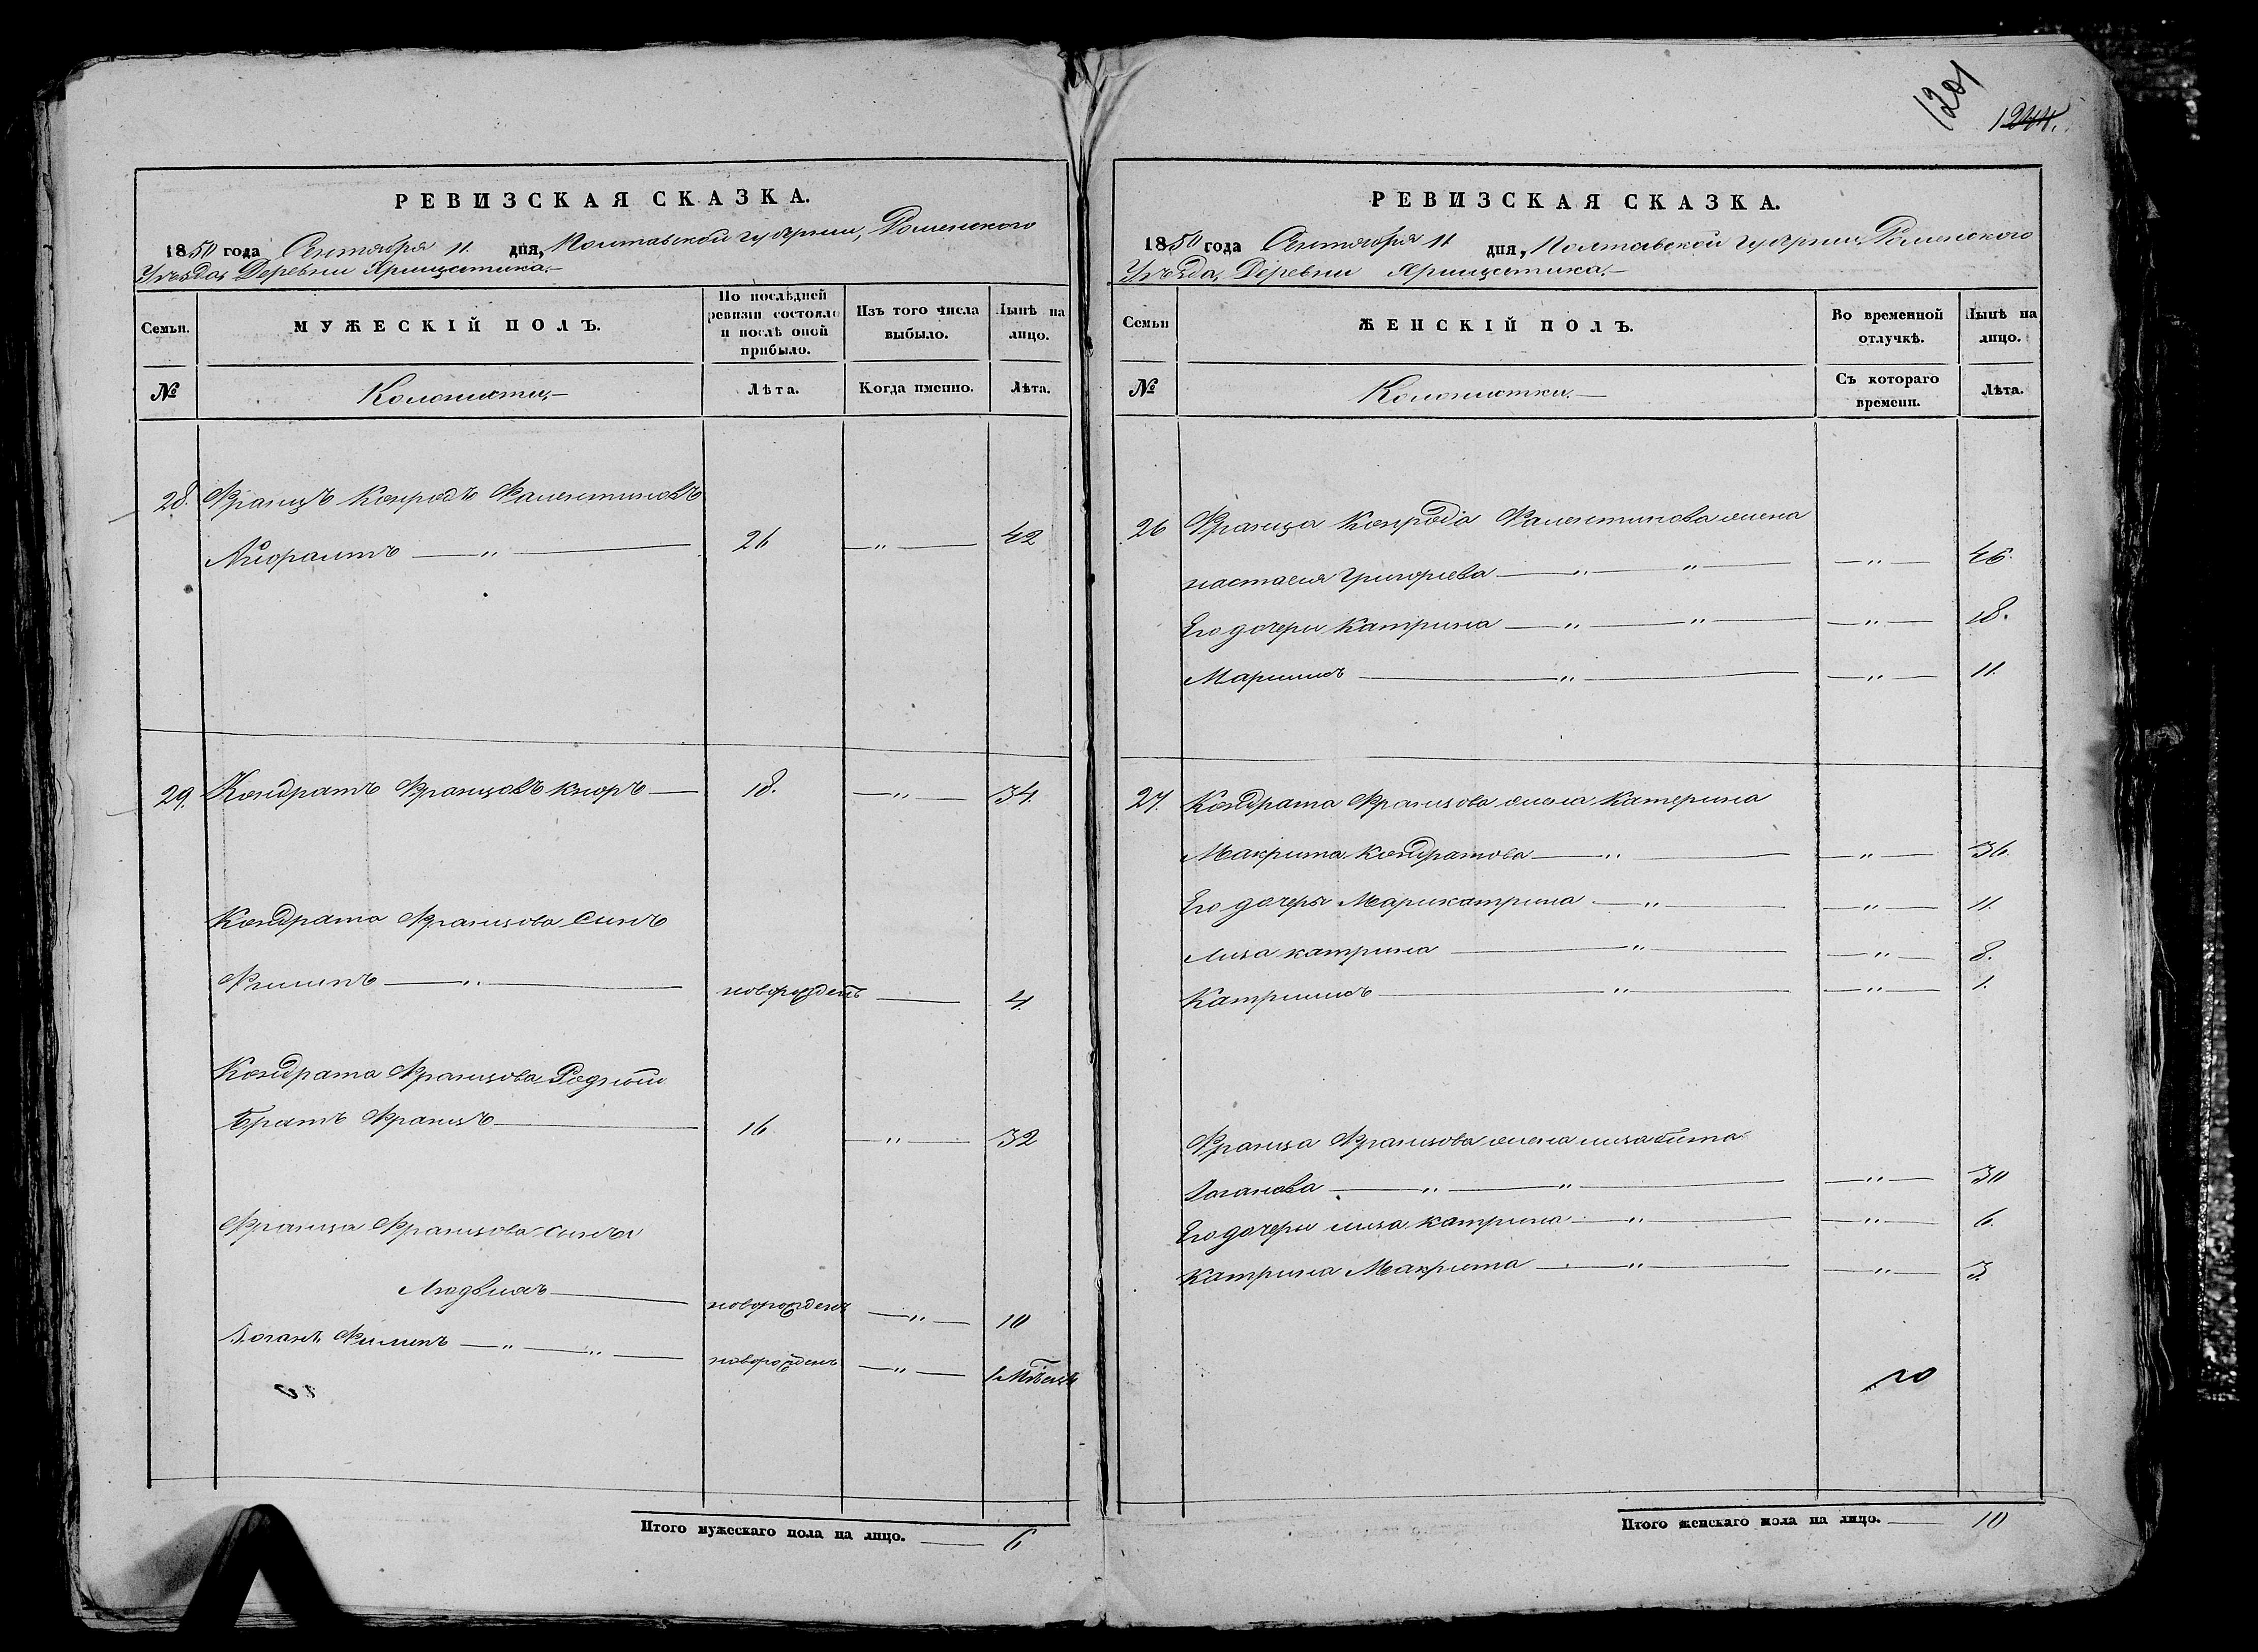 1201
1244.
РЕВИЗСКАЯ СКАЗКА.
1850 года Сентября 11 дня, Полтавской губернии, Роменского
Уѣзда, Деревни
Семьи. МУЖЕСКІЙ ПОЛЪ. По послѣдней ревизіи состояло и послѣ оной прибыло. Изъ того числа выбыло. Нынѣ на лицо.
№ Колонисты, Лѣта. Когда именно. Лѣта.
28. Францъ Конродъ Фалентиновъ
26 — „ — 42
29. Кондратъ Францовъ Кноръ — 18. — „ — 34.
Кондрата Францова Сынъ
Филипъ — „ — новорожденъ — 4.
Кондрата Францова Родной
Братъ Францъ — 16 — „ — 32
Франца Францова сыны
Людвихъ — новорожденъ — „ — 10
Іоганъ Филипъ — „ — „ — новорожденъ — „ — 1 Мѣсяцъ
Итого мужескаго пола на лицо. — 6
РЕВИЗСКАЯ СКАЗКА.
1850 года Сентября 11 дня, Полтавской губернии, Роменского
Уѣзда, Деревни
Семьи ЖЕНСКІЙ ПОЛЪ. Во временной отлучкѣ. Нынѣ на лицо.
№ Колонистки. Съ котораго времени. Лѣта.
26 Франца Конрода Фалентинова жена
настасия Григорьева — „ — „ — — „ — 46.
Его дочери Катрина — „ — „ — — „ — 18.
Маришъ — „ — — „ — 11.
27. Кондрата Францова жена Катерина
Макрита Кондратова — „ — — „ — 36.
Его дочеры Марикатрина — „ — — „ — 11.
Лиза катрина — „ — — „ — 8.
Катришъ — „ — — „ — 1.
Франца Францова жена лизабета
Іоганова — „ — „ — — „ — 30
Его дочери лиза катрина — „ — — „ — 6.
Катрина Макрита — „ — — „ — 3.
Итого женскаго пола на лицо. — 10